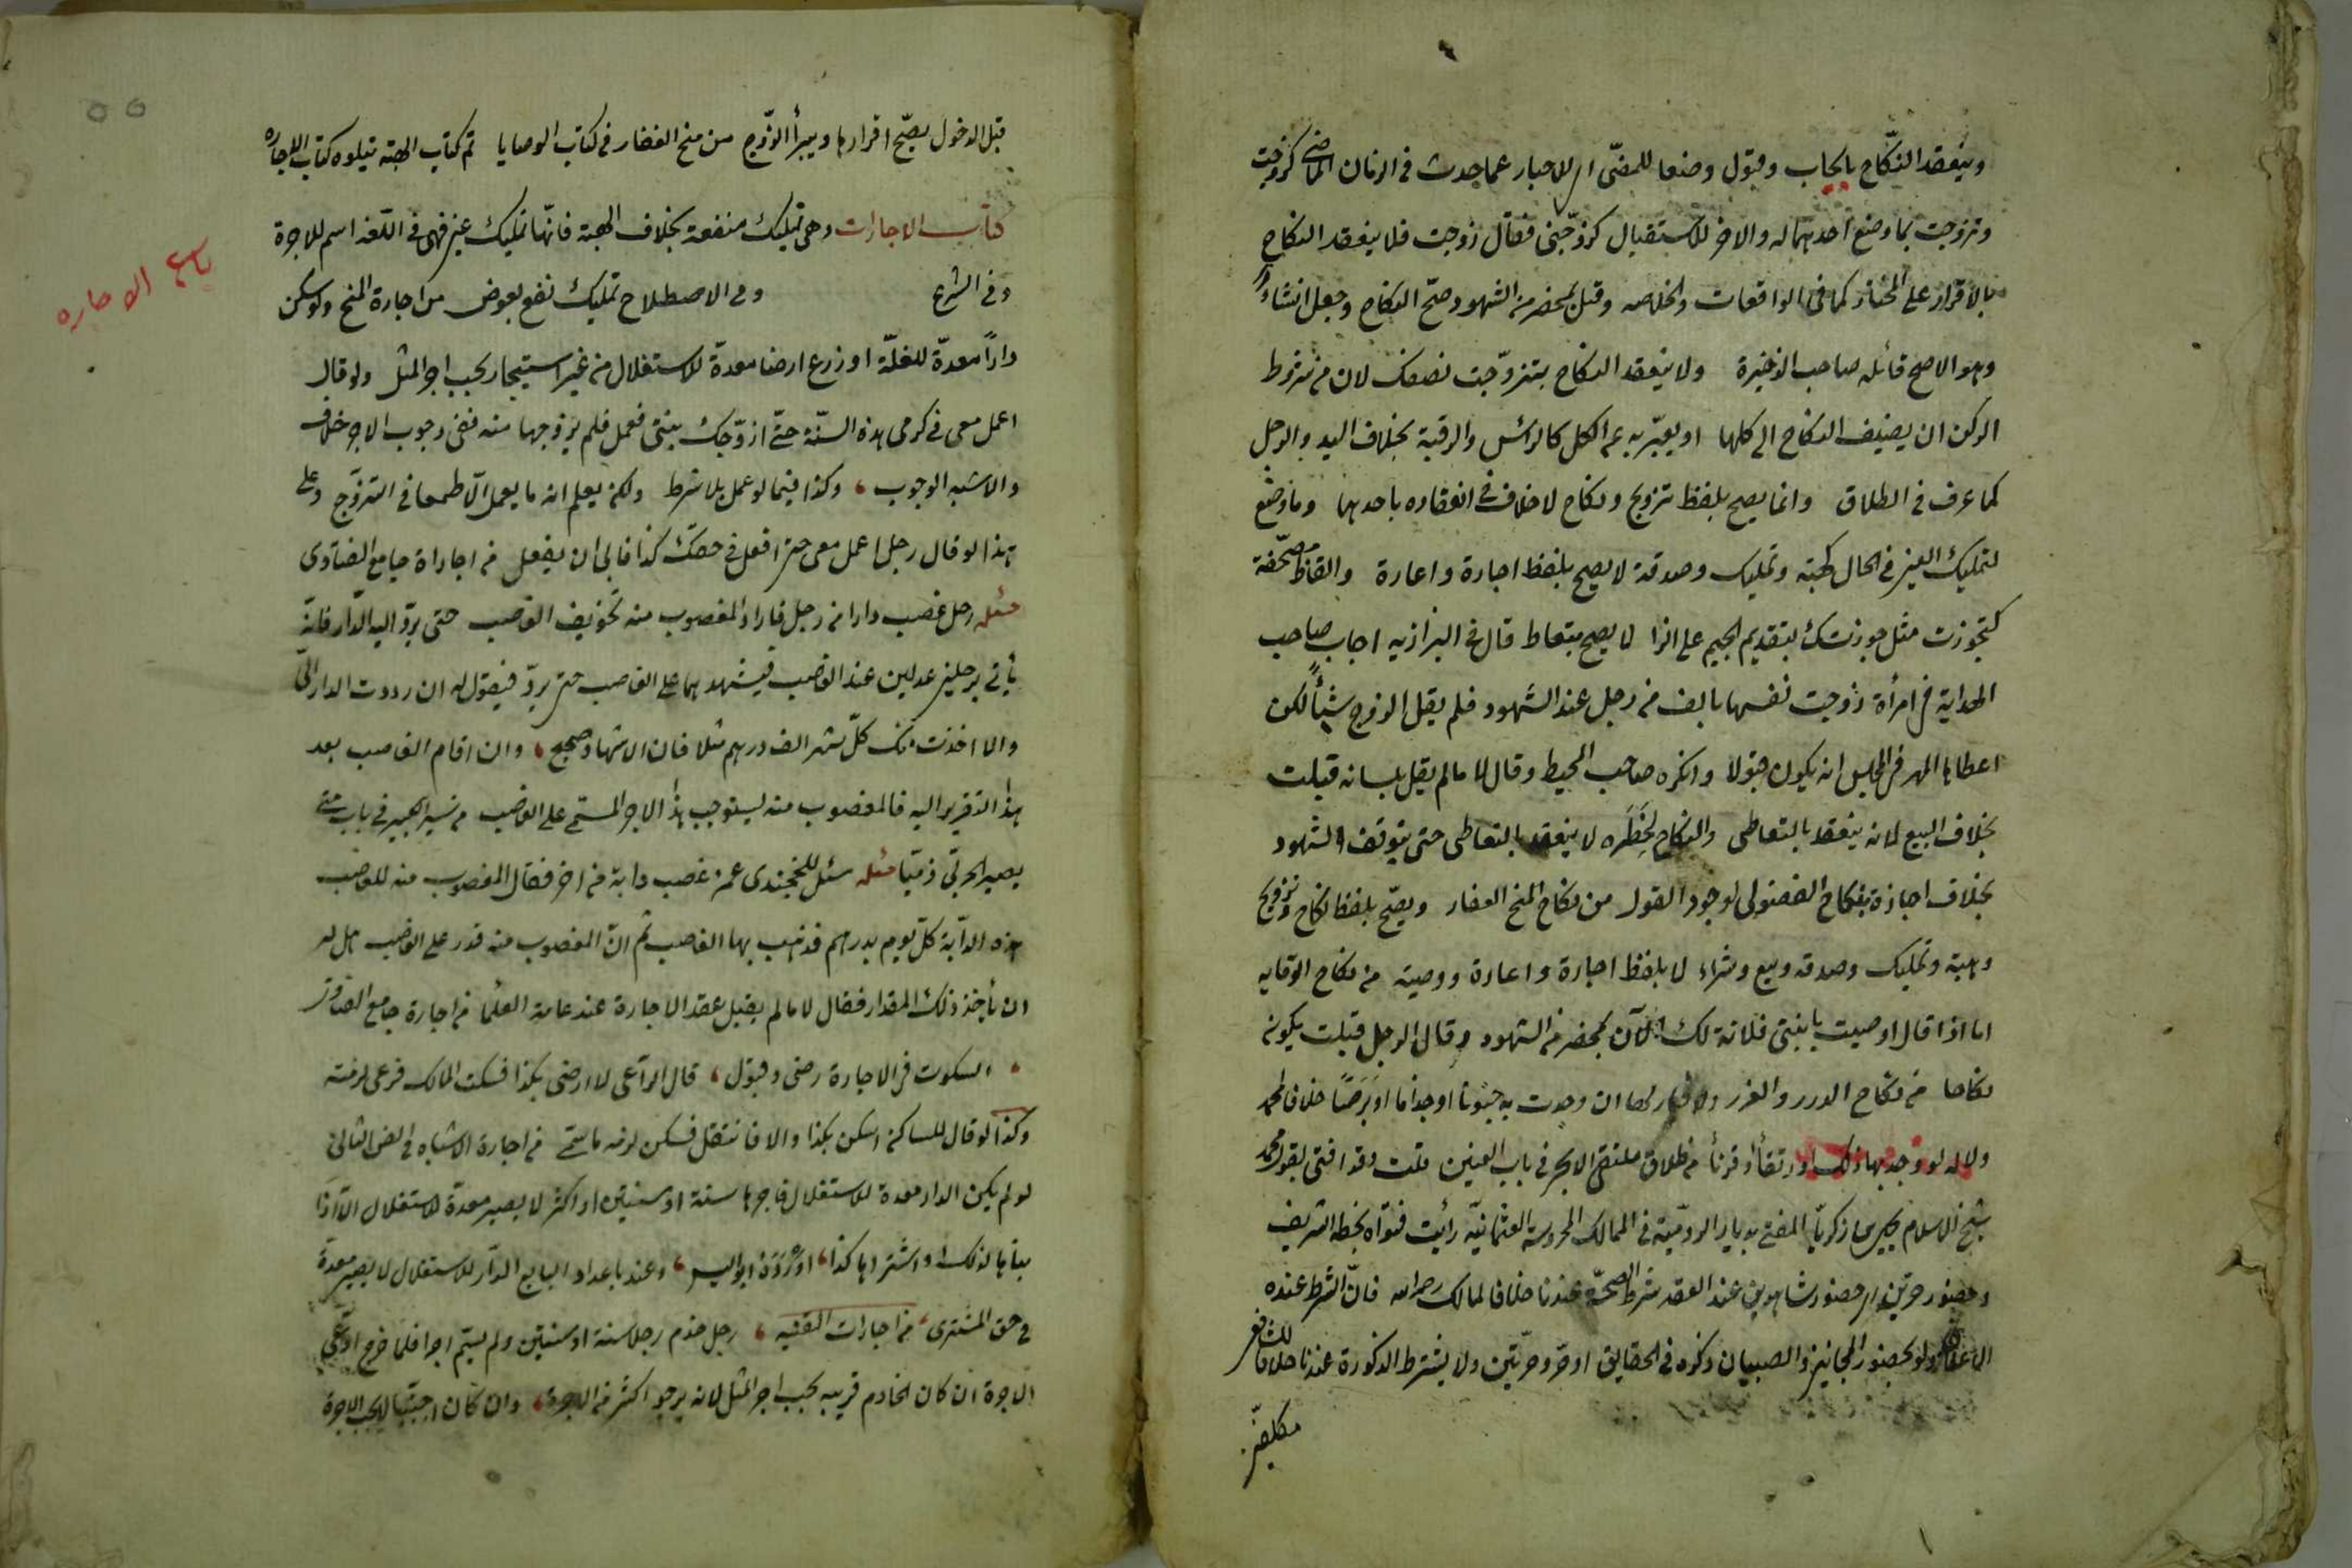 وينعقد النكّاح بايجاب وقبول وضعا للمضّى اى للاخبار عما حدث فى الزمان الماضى كزوّجت
وتزوجت بما وضع احدهما له والاخر للاستقبال كزوّجنى فقال زوجت فلا ينعقد النكاح
بالاقرار على المختار كما فى الواقعات والخلاصه وقيل بمحضر من الشهود صحّ النكاح وجعل انشاءً
وهو الاصح قائله صاحب الذخيرة ولا ينعقد النكاح بتزوّجت نصفك لان من شروط
الركن ان يضيف النكاح الى كلها او يعبّر به عن الكل كالرأس والرقبة بخلاف اليد والرجل
كما عرف فى الطلاق وانما يصح بلفظ تزويج ونكاح لا خلاف فى انعقاده باحدهما وما وضع
لتمليك العين فى الحال كهبة وتمليك وصدقة لا يصح بلفظ اجارة واعارة والفاظ مصحّفة
كتجوزت مثل جوزتك بتقديم الجيم على الزا لا يصح بتعاط قال فى البزازيه اجاب صاحب
الهداية فى امرأة زوجت نفسها بالف من رجل عند الشهود فلم يقل الزوج شيأً لكن
اعطاها المهر فى المجلس انه يكون قبولا وانكره صاحب المحيط وقال لا ما لم يقل بلسانه قبلت
بخلاف البيع لانه ينعقد بالتعاطى والنكاح لخطره لا ينعقد بالتعاطى حتى يتوقف الشهود
بخلاف اجازة نكاح الفضولى لوجود القول من نكاح المنح الغفار ويصحّ بلفظ نكاح وتزويج
وهبة وتمليك وصدقه وبيع وشراء لا بلفظ اجارة واعارة ووصيته من نكاح الوقايه
اما اذا قال اوصيت يا بنتى فلانة لك الآن بمحضر من الشهود وقال الرجل قبلت يكون
نكاحا من نكاح الدرر والغرر ولا خيار لها ان وجدت به جنونا او جذاما او برصًا خلافا لمحمد
ولا له لو وجد بها ذلك او رتقاً او قرناً من طلاق ملتقى الابحر فى باب العنين قلت وقد افتى بقول محمد
شيخ الاسلام يحيى بن زكريّا المفتى بديار الروميّة فى الممالك المحروسة العثمانيّه رأيت فتواه بخطه الشريف
وحضور حرّين اى حضور شاهدين عند العقد شرط الصحّة عندنا خلافا لمالك رحمه الله فانّ الشرط عنده
الاعلان ولو بحضور المجانين والصبيان ذكره فى الحقايق او حرّ وحرّتين ولا يشترط الذكورة عندنا خلافا للشافعى
مكلفين
قبل الدخول يصحّ اقرارها ويبرأ الزّوج من منح الغفار فى كتاب الوصايا تم كتاب الهبة يتلوه كتاب الاجاره
كتاب الاجارات وهى تمليك منفعة بخلاف الهبة فانّها تمليك عين فهى فى اللّغة اسم للاجرة
وفى الشرع وفى الاصطلاح تمليك نفع بعوض من اجارة المنح ولو سكن
باع الاجاره
داراً معدّة للغلّة او زرع ارضا معدّة للاستغلال من غير استيجار يجب اجر المثل ولو قال
اعمل معى فى كرمى هذه السنّة حتّى ازوّجك بنتى فعمل فلم يزوجها منه ففى وجوب الاجر خلاف
والاشبه الوجوب وكذا فيما لو عمل بلا شرط ولكن يعلم انه ما يعمل الّا طمعا فى التزوّج وعلى
هذا لو قال رجل اعمل معى حتى افعل فى حقك كذا فابى ان يفعل من اجاراة جامع الفتاوى
مسئله رجل غصب دارا من رجل فاراد المغصوب منه تخويف الغاصب حتى يردّ اليه الدّار فانّه
يأتى برجلين عدلين عند الغاصب فيشهدهما على الغاصب حتى يردّ فيقول له ان رددت الدار الىّ
والا اخذت منك كلّ شهر الف درهم مثلا فان الاشهاد صحيح وان اقام الغاصب بعد
هذا التقرير اليه فالمغصوب منه يستوجب هذا الاجر المسمّى على الغاصب من سير الكبير فى باب متى
يصير الحربّى ذميّا مسئله سئل الخجندى عمن غصب دابة من اخر فقال المغصوب منه للغاصب
هذه الدابّة كلّ يوم بدرهم فذهب بها الغاصب ثم انّ المغصوب منه قدر على الغاصب هل له
ان يأخذ ذلك المقدار فقال لا ما لم يقبل عقد الاجارة عند عامة العلما من اجارة جامع الفتاوى
السكوت فى الاجارة رضى وقبول قال الرّاعى لا ارضى بكذا فسكت المالك فرعى لزمته
وكذا لو قال للساكن اسكن بكذا والا فانتقل فسكن لزمه ما سمّى من اجارة الاشباه فى الفن الثانى
لو لم يكن الدار معدة للاستغلال فاجرها سنة او سنتين او اكثر لا يصير معدّة للاستغلال الّا اذا
بناها لذلك او اشتراها كذا وعند باعداد البايع الدّار للاستغلال لا يصير معدّة
فى حق المشترى من اجارات القنيه رجل خدم رجلا سنة او سنتين ولم يسمّ اجرا فلما خرج ادّعى
الاجرة ان كان الخادم قريبه يجب اجر المثل لانه يرجو اكثر من الاجرة وان كان اجنبيّا لا يجب الاجرة